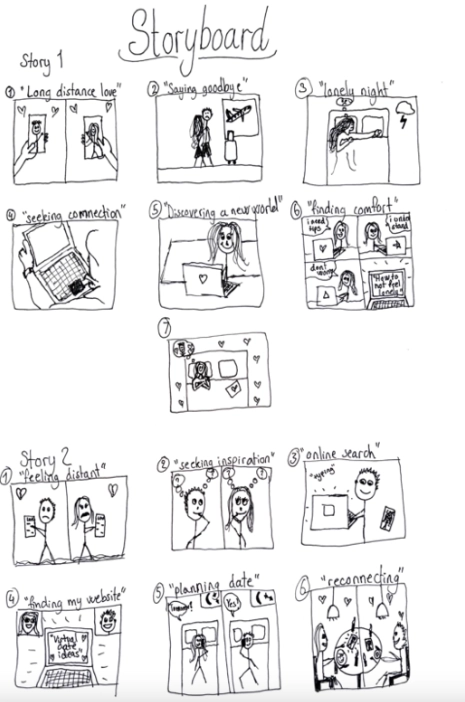 Storyboard
Story 1
① "Long distance love"
② "Saying goodbye"
③ "lonely night"
④ "seeking connection"
⑤ "Discovering a new world"
⑥ "finding comfort"
i need tips
i understand
don't worry
"How to not feel lonely"
⑦
Story 2
① "feeling distant"
② "seeking inspiration"
? ? ? ?
③ "online search"
"typing"
④ "finding my website"
"Virtual date ideas"
⑤ "planning date"
Yes!
⑥ "reconnecting"